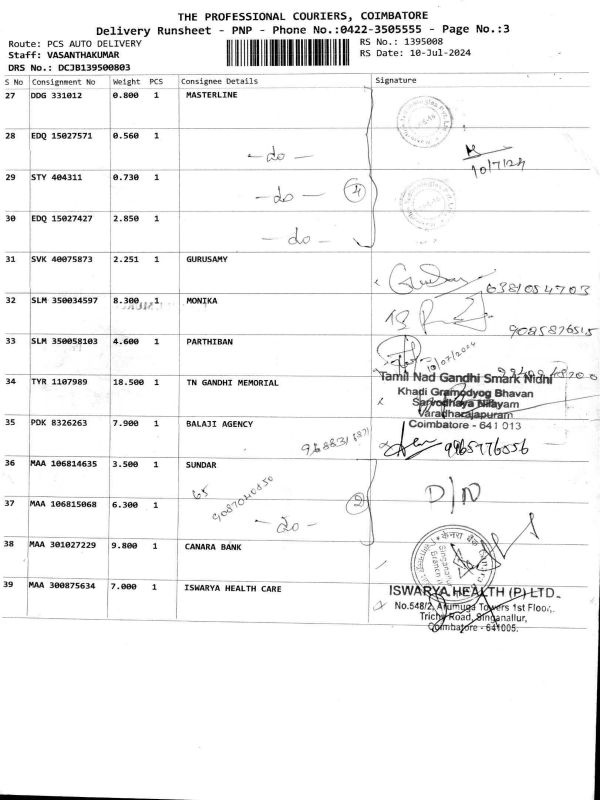 THE PROFESSIONAL COURIERS, COIMBATORE
Delivery Runsheet - PNP - Phone No.:0422-3505555 - Page No.:3
Route: PCS AUTO DELIVERY
RS No.: 1395008
Staff: VASANTHAKUMAR
RS Date: 10-Jul-2024
DRS No.: DCJB139500803
S No Consignment No Weight PCS Consignee Details Signature
27 DDG 331012 0.800 1 MASTERLINE
28 EDQ 15027571 0.560 1
- do -
10/7/24
29 STY 404311 0.730 1
- do - 4
30 EDQ 15027427 2.850 1
- do -
31 SVK 40075873 2.251 1 GURUSAMY
6381084703
32 SLM 350034597 8.300 1 MONIKA
9085876515
33 SLM 350058103 4.600 1 PARTHIBAN
10/07/2024
34 TYR 1107989 18.500 1 TN GANDHI MEMORIAL
Tamil Nad Gandhi Smark Nidhi
Khadi Gramodyog Bhavan
Sarvodhaya Nilayam
Varadharajapuram
Coimbatore - 641 013
35 PDK 8326263 7.900 1 BALAJI AGENCY
9965776556
36 MAA 106814635 3.500 1 SUNDAR
65
9087040850
D/N
37 MAA 106815068 6.300 1
- do - 2
38 MAA 301027229 9.800 1 CANARA BANK
39 MAA 300875634 7.000 1 ISWARYA HEALTH CARE
ISWARYA HEALTH (P) LTD.
No.548/2, Arumuga Towers 1st Floor,
Trichy Road, Singanallur,
Coimbatore - 641005.